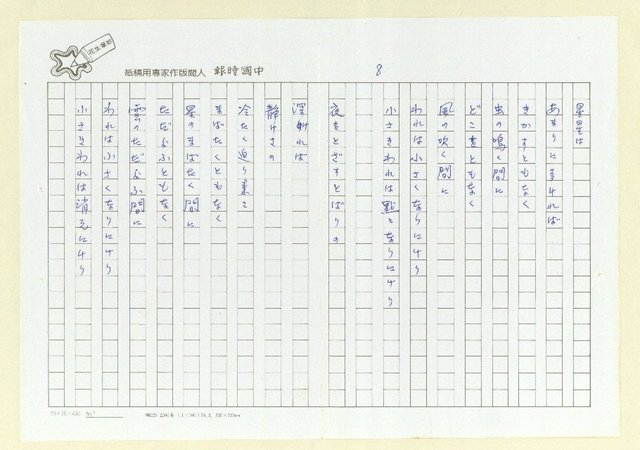 中國時報 人間版作家專用稿紙
8
星星は
あまりに
きかずともなく
虫の鳴く間に
どこをともなく
風の吹く間に
われは小さくなりにけり
小さきわれは點となりにけり
夜をとざすとばりの
深ければ
静けさの
冷たく迫り来て
まばたくともなく
星のまばたく間に
ただよふともなく
雲のただよふ間に
われは小さくなりにけり
小さきわれは消えにけり
No.